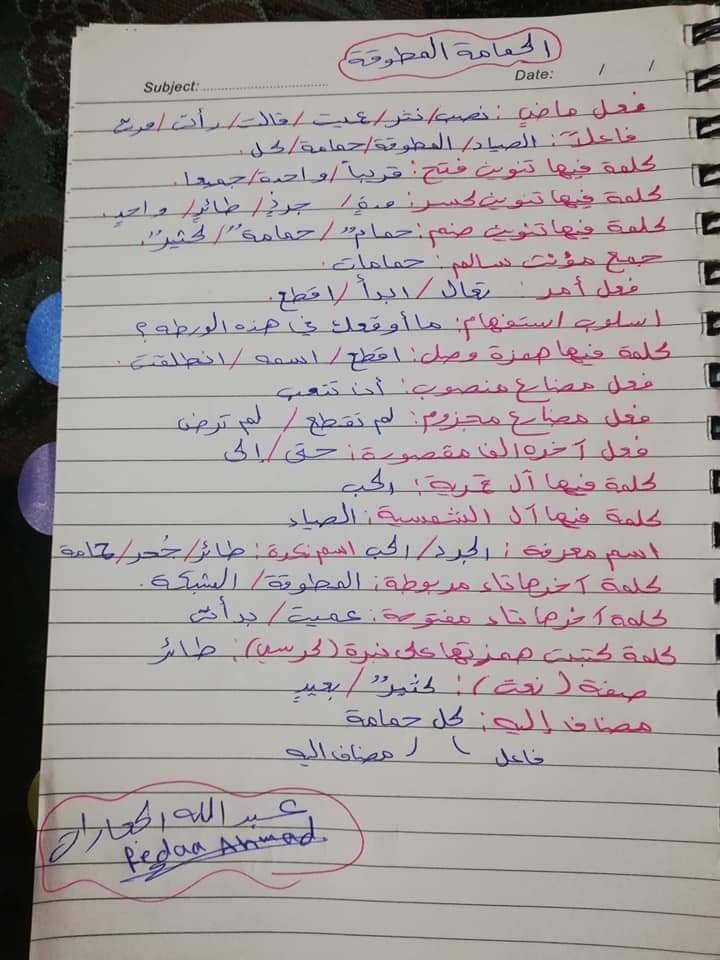 الحمامة المطوقة
Subject: Date: / /
فعل ماضي: نصب/نثر/عميت/قالت/رأت/
فاعل: الصياد/المطوقة/حمامة/كل.
كلمة فيها تنوين فتح: قريباً/واحدة/جميعا.
كلمة فيها تنوين كسر: / جرذٍ/ طائرٍ/ واحدٍ.
كلمة فيها تنوين ضم: حمامٌ/ حمامةٌ/ كثيرٌ.
جمع مؤنث سالم: حمامات.
فعل أمر: تعال/ ابدأ/ اقطع.
اسلوب استفهام: ما أوقعك في هذه الورطه؟
كلمة فيها همزة وصل: اقطع/ اسمه/ انطلقت.
فعل مضارع منصوب: أن تتعب
فعل مضارع مجزوم: لم تقطع/ لم ترض
فعل آخره الف مقصورة: حتى/ إلى
كلمة فيها آل قمرية: الحب
كلمة فيها آل الشمسية: الصياد
اسم معرفة: الجرد/ الحب اسم نكرة: طائر/ جُحر/ حمامة
كلمة آخرها تاء مربوطة: المطوقة/ الشبكة.
كلمة آخرها تاء مفتوحة: عميت/ بدأت
كلمة كتبت همزتها على نبرة (كرسي): طائر
صفة (نعت): كثيرٌ/ بعيدٍ
مضاف إليه: كل حمامة
فاعل / مضاف اليه
عبد الله
Pedaa Ahmad